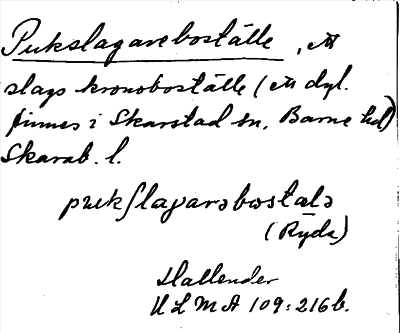 Pukslagareboställe, ett
slags kronoboställe (ett dyl.
finnes i Skarstad sn, Barne hd)
Skarab. l.
pukslagarəbostalə
(Ryda)
Hallender
ULMA 109:216b.